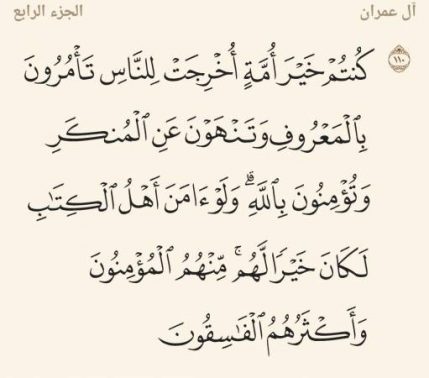 آل عمران
الجزء الرابع
١١٠ كُنتُمْ خَيْرَ أُمَّةٍ أُخْرِجَتْ لِلنَّاسِ تَأْمُرُونَ
بِٱلْمَعْرُوفِ وَتَنْهَوْنَ عَنِ ٱلْمُنكَرِ
وَتُؤْمِنُونَ بِٱللَّهِ ۗ وَلَوْ ءَامَنَ أَهْلُ ٱلْكِتَٰبِ
لَكَانَ خَيْرًا لَّهُم ۚ مِّنْهُمُ ٱلْمُؤْمِنُونَ
وَأَكْثَرُهُمُ ٱلْفَٰسِقُونَ